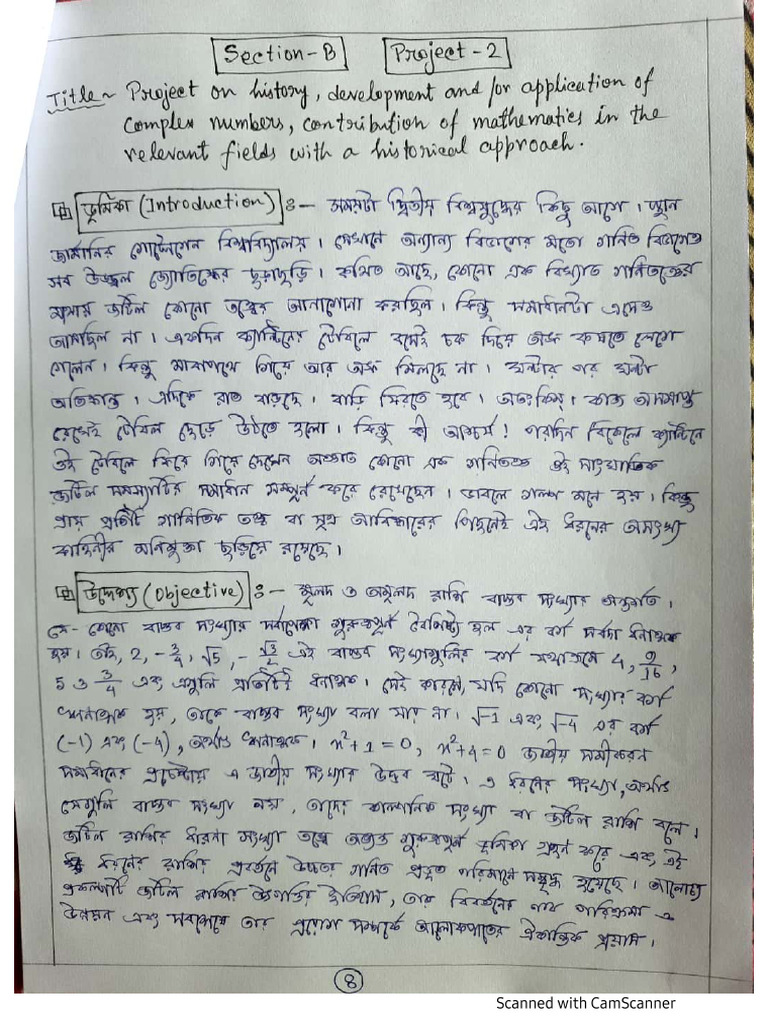 Section-B Project-2
Title~ Project on history, development and/or application of
complex numbers, contribution of mathematics in the
relevant fields with a historical approach.
ভূমিকা (Introduction) :— সময়টা দ্বিতীয় বিশ্বযুদ্ধের কিছু আগে। স্থান
জার্মানির গোটেংগেন বিশ্ববিদ্যালয়। সেখানে অন্যান্য বিভাগের মতো গণিত বিভাগেও
সব উজ্জ্বল জ্যোতিষ্কের ছড়াছড়ি। কথিত আছে, কোনো এক বিখ্যাত গণিতজ্ঞের
মাথায় জটিল কোনো তত্ত্বের আনাগোনা করছিল। কিন্তু সমাধানটা এসেও
আসছিল না। একদিন ক্যান্টিনের টেবিলে বসেই চক দিয়ে অঙ্ক কষতে লেগে
গেলেন। কিন্তু মাঝপথে গিয়ে আর অঙ্ক মিলছে না। ঘন্টার পর ঘন্টা
অতিক্রান্ত। এদিকে রাত বাড়ছে। বাড়ি ফিরতে হবে। অতঃকিম্। কাজ অসমাপ্ত
রেখেই টেবিল ছেড়ে উঠতে হলো। কিন্তু কী আশ্চর্য! পরদিন বিকেলে ক্যান্টিনে
ওই টেবিলে ফিরে গিয়ে দেখেন অজ্ঞাত কোনো এক গণিতজ্ঞ ওই সাংঘাতিক
জটিল সমস্যাটির সমাধান সম্পূর্ন করে রেখেছেন। ভাবলে গল্প মনে হয়। কিন্তু
প্রায় প্রতিটি গাণিতিক তত্ত্ব বা সূত্র আবিষ্কারের পিছনেই এই ধরনের অসংখ্য
কাহিনীর মণিমুক্তা ছড়িয়ে রয়েছে।
উদ্দেশ্য (Objective) :— মূলদ ও অমূলদ রাশি বাস্তব সংখ্যার অন্তর্গত।
যে- কোনো বাস্তব সংখ্যার সর্বাপেক্ষা গুরুত্বপূর্ন বৈশিষ্ট্য হল এর বর্গ সর্বদা ধনাত্মক
হয়। তাই, 2, -3/4, √5, -√3/2 এই বাস্তব সংখ্যাগুলির বর্গ যথাক্রমে 4, 9/16,
5 ও 3/4 এবং এগুলি প্রতিটিই ধনাত্মক। সেই কারনে, যদি কোনো সংখ্যার বর্গ
ঋনাত্মক হয়, তাকে বাস্তব সংখ্যা বলা যায় না। √-1 এবং √-4 এর বর্গ
(-1) এবং (-4), অর্থাৎ ঋনাত্মক। x²+1=0, x²+4=0 জাতীয় সমীকরন
সমাধানের প্রচেষ্টায় এ জাতীয় সংখ্যার উদ্ভব ঘটে। এ ধরনের সংখ্যা, অর্থাৎ
যেগুলি বাস্তব সংখ্যা নয়, তাদের কাল্পনিক সংখ্যা বা জটিল রাশি বলে।
জটিল রাশির ধারনা সংখ্যা তত্ত্বে অত্যন্ত গুরুত্বপূর্ন ভূমিকা গ্রহন করে এবং এই
ধরনের রাশির প্রবর্তনে উচ্চতর গনিত প্রভূত পরিমানে সমৃদ্ধ হয়েছে। আলোচ্য
প্রকল্পটি জটিল রাশির উৎপত্তির ইতিহাস, তার বিবর্তনের পথ পরিক্রমা ও
উন্নয়ন এবং সবশেষে তার প্রয়োগ সম্পর্কে আলোকপাতের ঐকান্তিক প্রয়াস।
8
Scanned with CamScanner